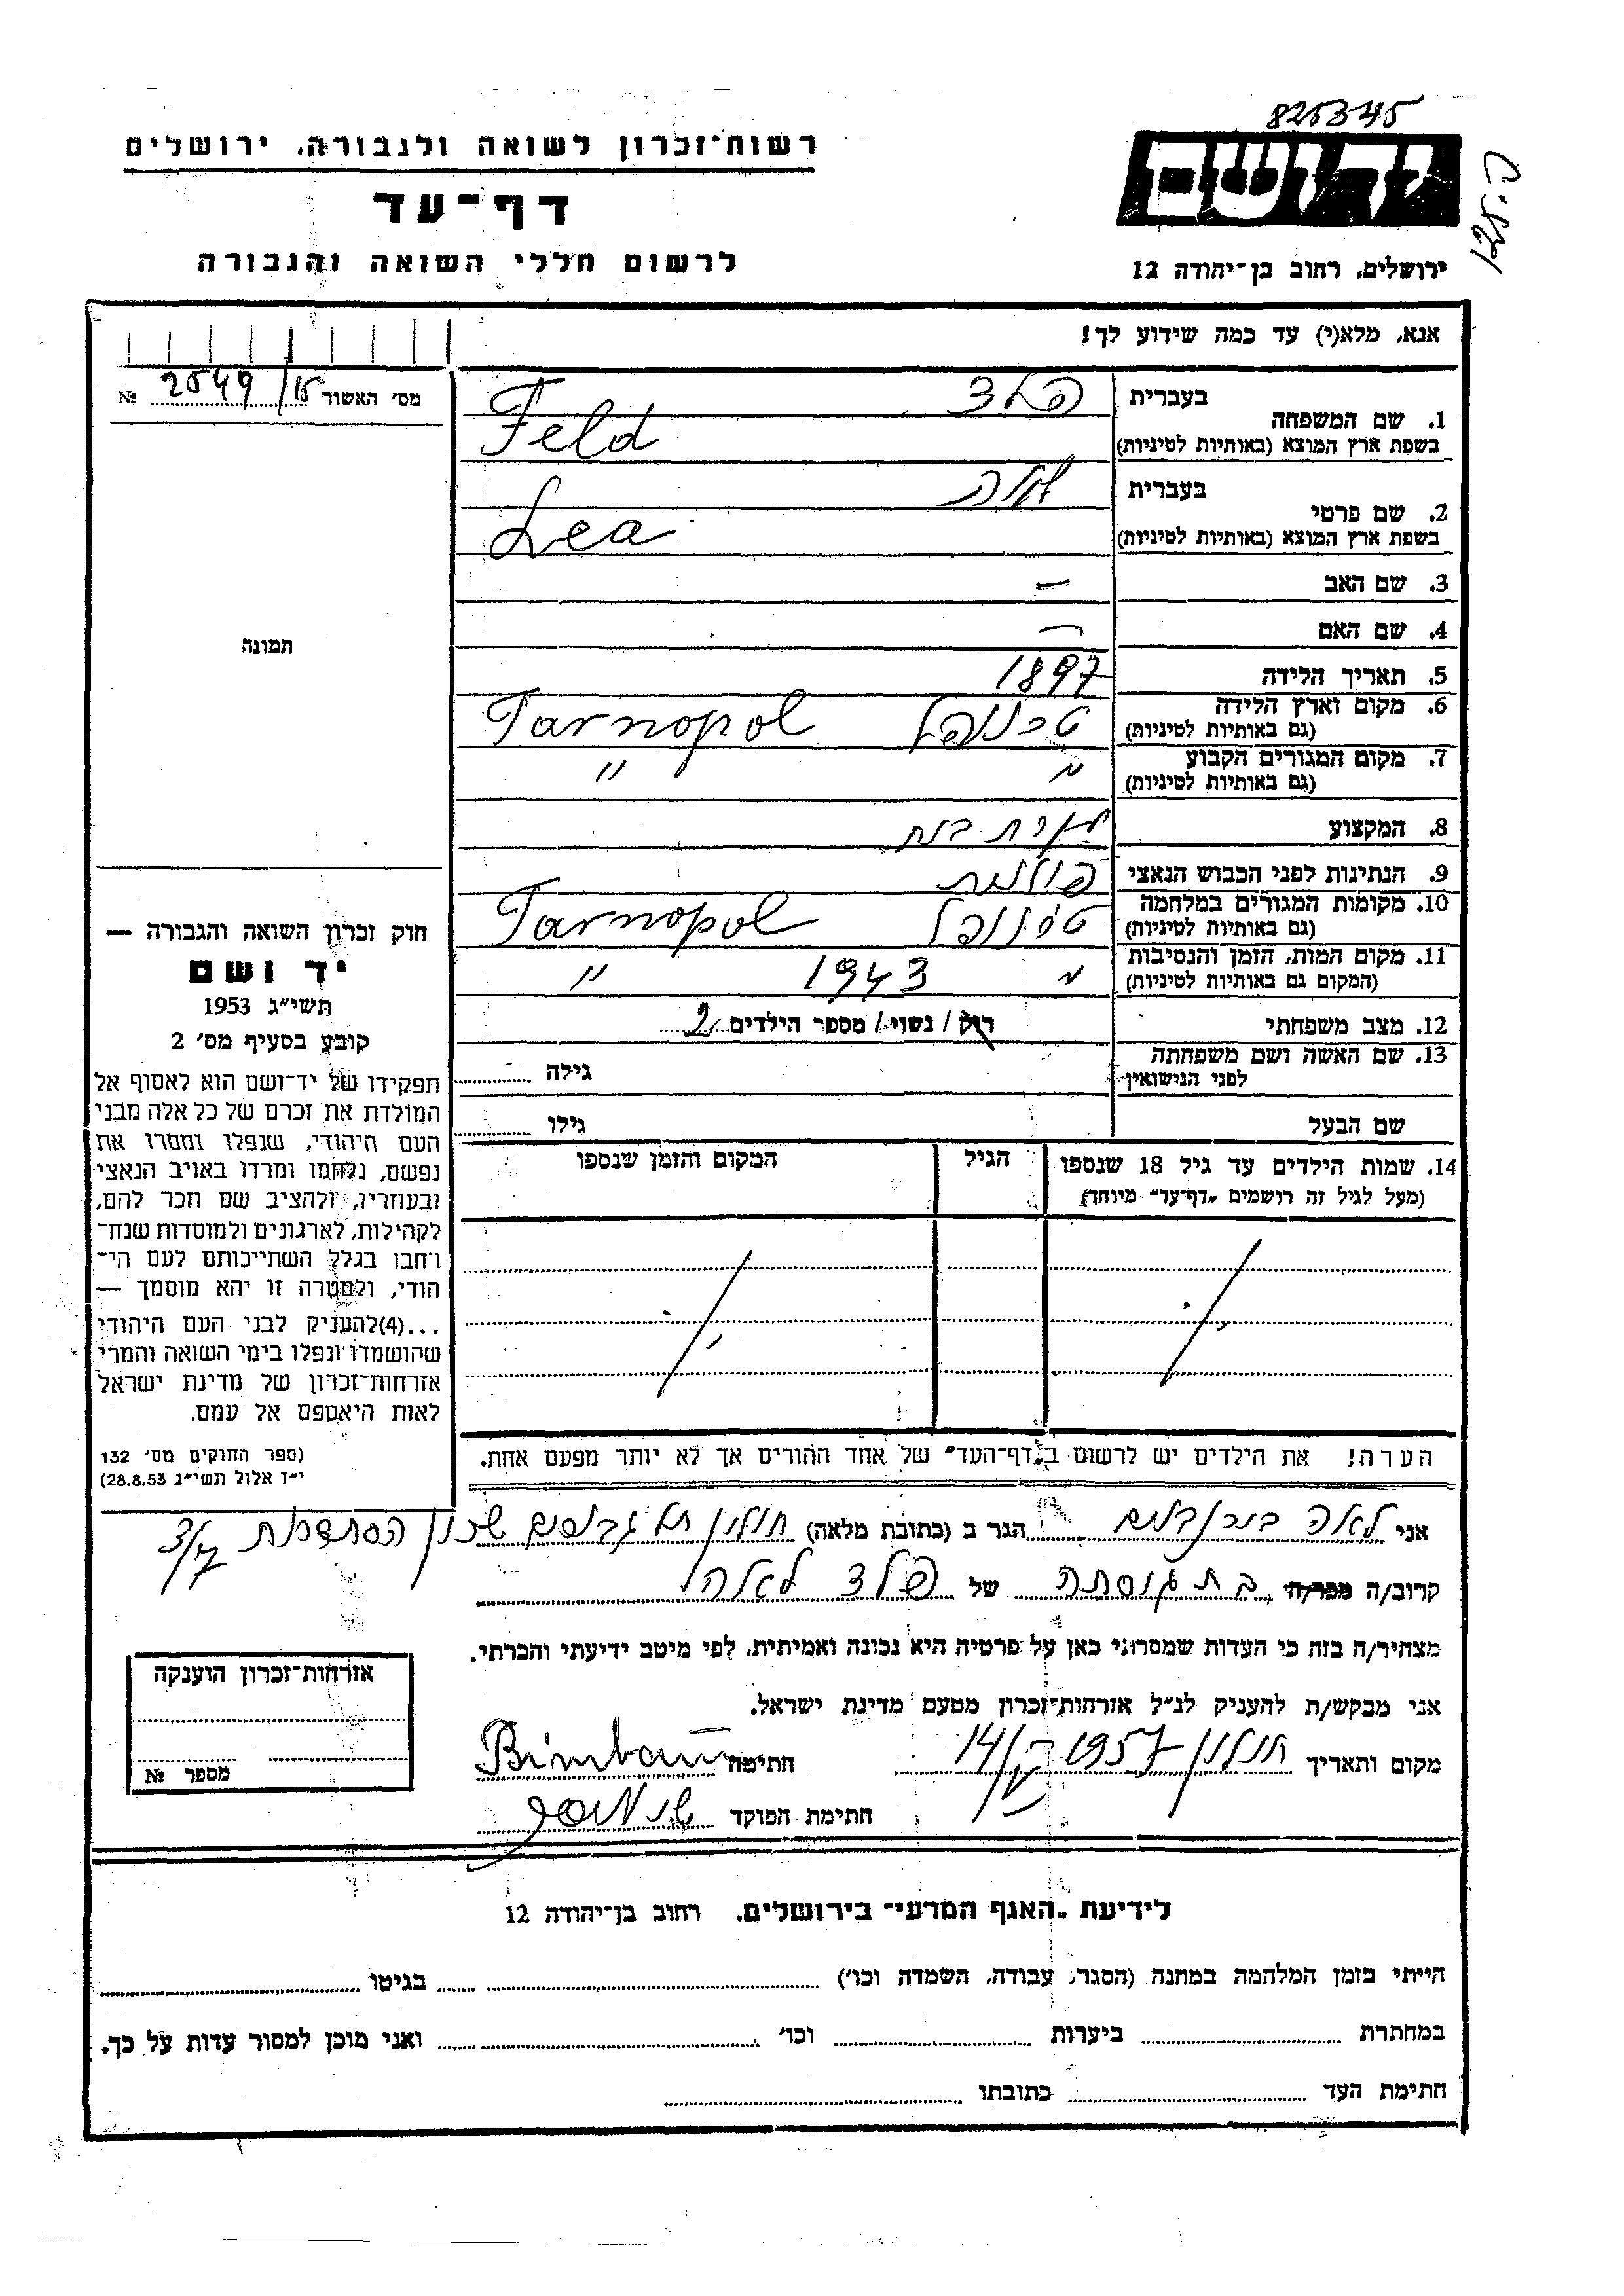 825345
רשות־זכרון לשואה ולגבורה, ירושלים
יד ושם
דף־עד
לרשום חללי השואה והגבורה
ירושלים, רחוב בן־יהודה 12
אנא, מלא(י) עד כמה שידוע לך!
מס' האשוד 2549/15 №
1. שם המשפחה
בעברית פלד
בשפת ארץ המוצא (באותיות לטיניות) Feld
2. שם פרטי
בעברית לאה
בשפת ארץ המוצא (באותיות לטיניות) Lea
3. שם האב —
4. שם האם —
5. תאריך הלידה 1897
6. מקום וארץ הלידה טרנופל Tarnopol
(גם באותיות לטיניות)
7. מקום המגורים הקבוע " "
(גם באותיות לטיניות)
8. המקצוע עקרת בית
9. הנתינות לפני הכבוש הנאצי פולנית
10. מקומות המגורים במלחמה טרנופל Tarnopol
(גם באותיות לטיניות)
11. מקום המות, הזמן והנסיבות " 1943 "
(המקום גם באותיות לטיניות)
12. מצב משפחתי רווק / נשוי / מספר הילדים 2
13. שם האשה ושם משפחתה גילה
לפני הנישואין
שם הבעל גילו
14. שמות הילדים עד גיל 18 שנספו הגיל המקום והזמן שנספו
(מעל לגיל זה רושמים „דף־עד" מיוחד)
הערה! את הילדים יש לרשום ב„דף־העד" של אחד ההורים אך לא יותר מפעם אחת.
תמונה
חוק זכרון השואה והגבורה —
יד ושם
תשי"ג 1953
קובע בסעיף מס' 2
תפקידו של יד־ושם הוא לאסוף אל
המולדת את זכרם של כל אלה מבני
העם היהודי, שנפלו ומסרו את
נפשם, נלחמו ומרדו באויב הנאצי
ובעוזריו, ולהציב שם וזכר להם,
לקהילות, לארגונים ולמוסדות שנח־
רבו בגלל השתייכותם לעם הי־
הודי, ולמטרה זו יהא מוסמך —
...(4)להעניק לבני העם היהודי
שהושמדו ונפלו בימי השואה והמרי
אזרחות־זכרון של מדינת ישראל
לאות היאספם אל עמם.
(ספר החוקים מס' 132
י"ז אלול תשי"ג 28.8.53)
אני לאה בירנבוים הגר ב (כתובת מלאה) חולון תל גבורים שכון הסתדרות
קרוב/ה מכר/ה בת גיסתה של פלד לאה
מצהיר/ה בזה כי העדות שמסרתי כאן על פרטיה היא נכונה ואמיתית, לפי מיטב ידיעתי והכרתי.
אני מבקש/ת להעניק לנ"ל אזרחות־זכרון מטעם מדינת ישראל.
מקום ותאריך חולון 1957 חתימה Birnbaum
חתימת הפוקד
אזרחות־זכרון הוענקה
מספר №
לידיעת „האגף המדעי" בירושלים, רחוב בן־יהודה 12
הייתי בזמן המלהמה במחנה (הסגר, עבודה, השמדה וכו') בגיטו
במחתרת ביערות וכו' ואני מוכן למסור עדות על כך.
חתימת העד כתובתו